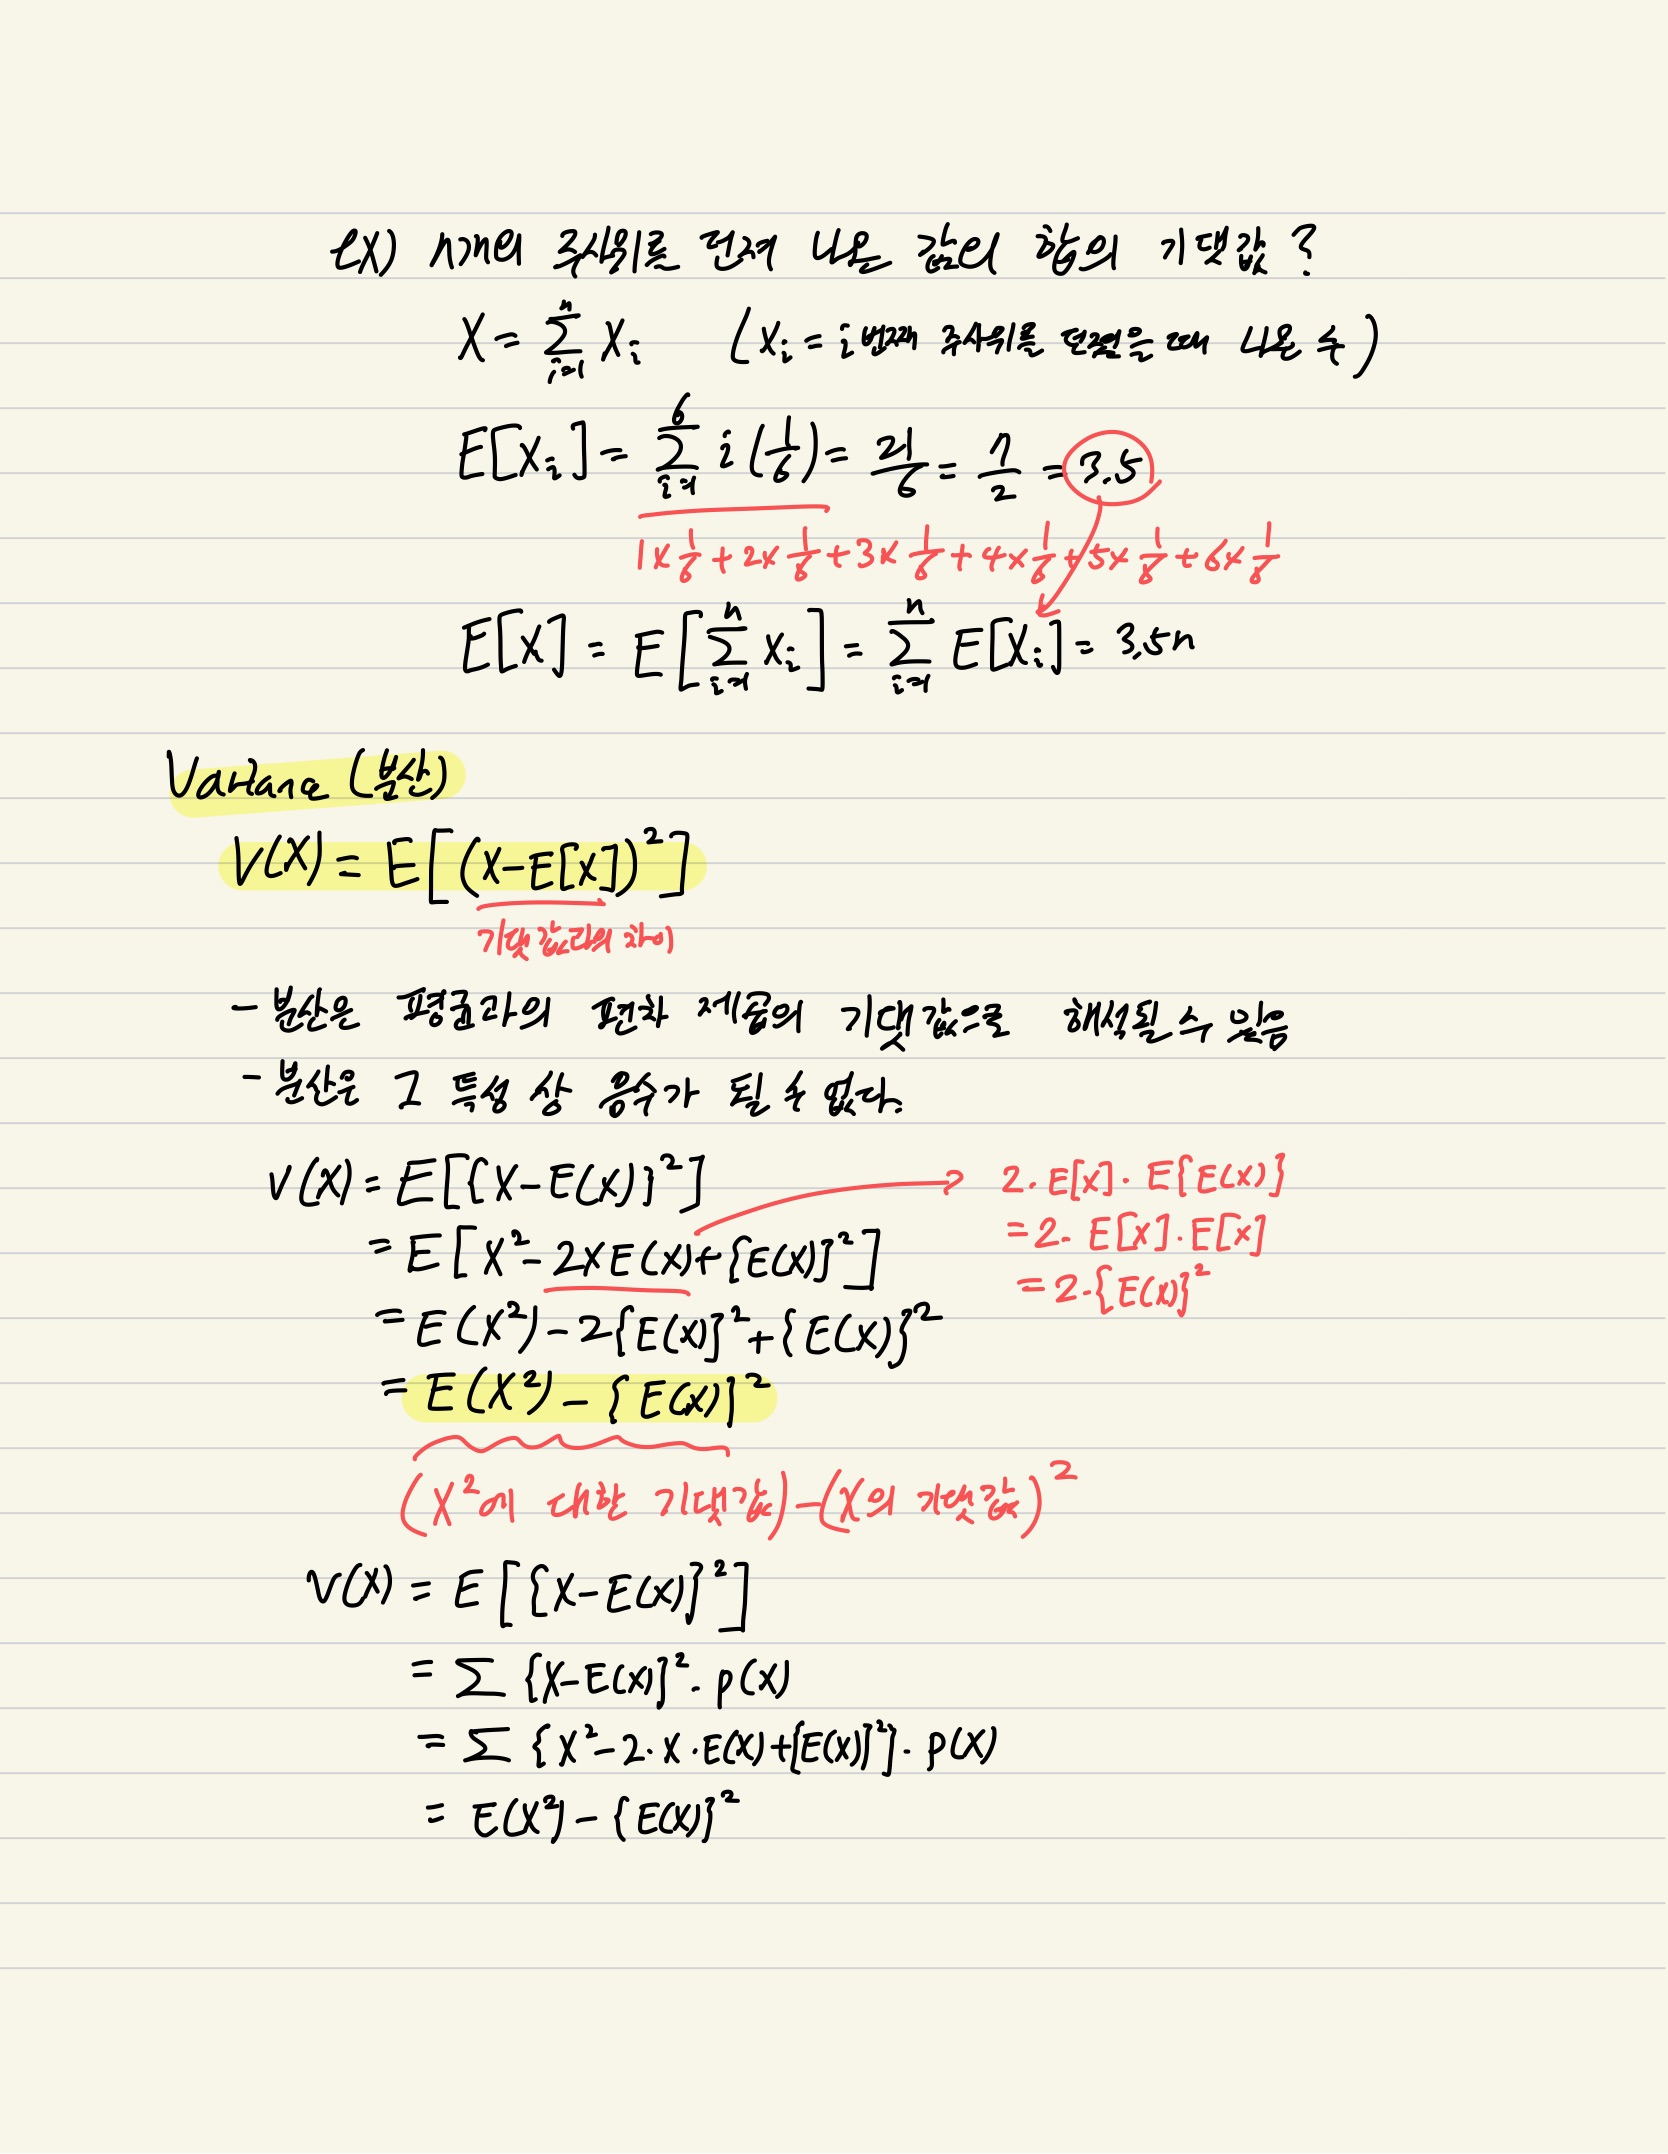 ex) n개의 주사위를 던져 나온 값의 합의 기댓값?
X = Σ_{i=1}^{n} X_i (X_i = i번째 주사위를 던졌을 때 나온 수)
E[X_i] = Σ_{i=1}^{6} i(1/6) = 21/6 = 7/2 = 3.5
1×1/6 + 2×1/6 + 3×1/6 + 4×1/6 + 5×1/6 + 6×1/6
E[X] = E[Σ_{i=1}^{n} X_i] = Σ_{i=1}^{n} E[X_i] = 3.5n
Variance (분산)
V(X) = E[(X-E[X])²]
기댓값과의 차이
- 분산은 평균과의 편차 제곱의 기댓값으로 해석될 수 있음
- 분산은 그 특성 상 음수가 될 수 없다.
V(X) = E[{X-E(X)}²]
2·E[X]·E{E(X)}
= E[X²-2XE(X)+{E(X)}²]
= 2·E[X]·E[X]
= 2·{E(X)}²
= E(X²)-2{E(X)}²+{E(X)}²
= E(X²)-{E(X)}²
(X²에 대한 기댓값)-(X의 기댓값)²
V(X) = E[{X-E(X)}²]
= Σ {X-E(X)}²·p(X)
= Σ {X²-2·X·E(X)+{E(X)}²}·p(X)
= E(X²)-{E(X)}²